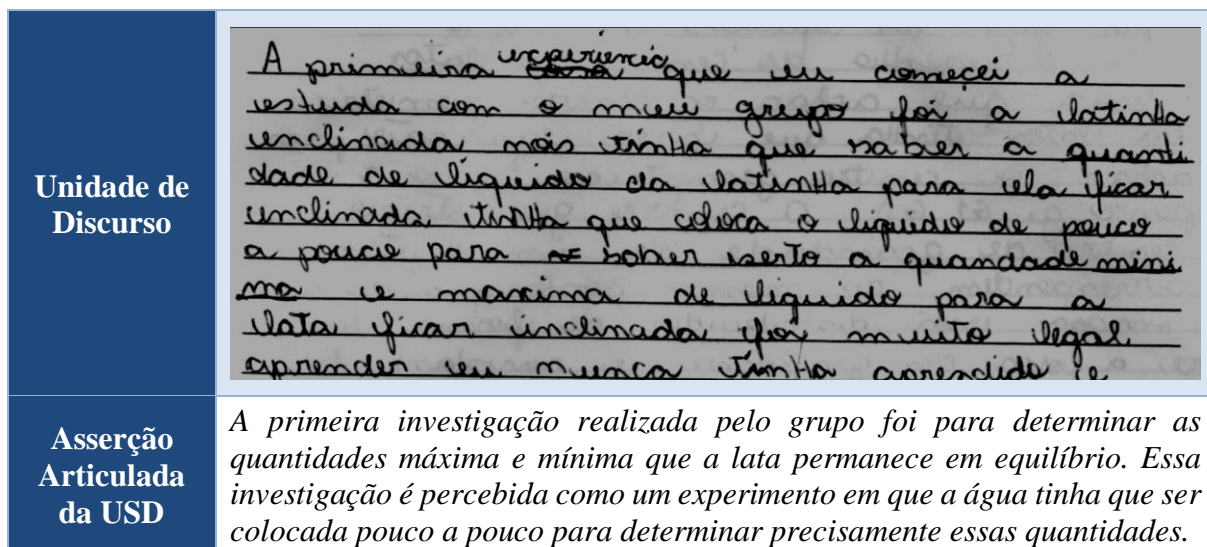 Unidade de
Discurso
A primeira experiencia que eu começei a
estuda com o meu grupo foi a latinha
enclinada mais tinha que saber a quanti
dade de liquido da latinha para ela ficar
enclinada tinha que coloca o liquido de pouco
a pouco para saber serto a quandade mini
ma e maxima de liquido para a
lata ficar inclinada foi muito legal
aprender eu nunca tinha aprendido e
Asserção
Articulada
da USD
A primeira investigação realizada pelo grupo foi para determinar as
quantidades máxima e mínima que a lata permanece em equilíbrio. Essa
investigação é percebida como um experimento em que a água tinha que ser
colocada pouco a pouco para determinar precisamente essas quantidades.